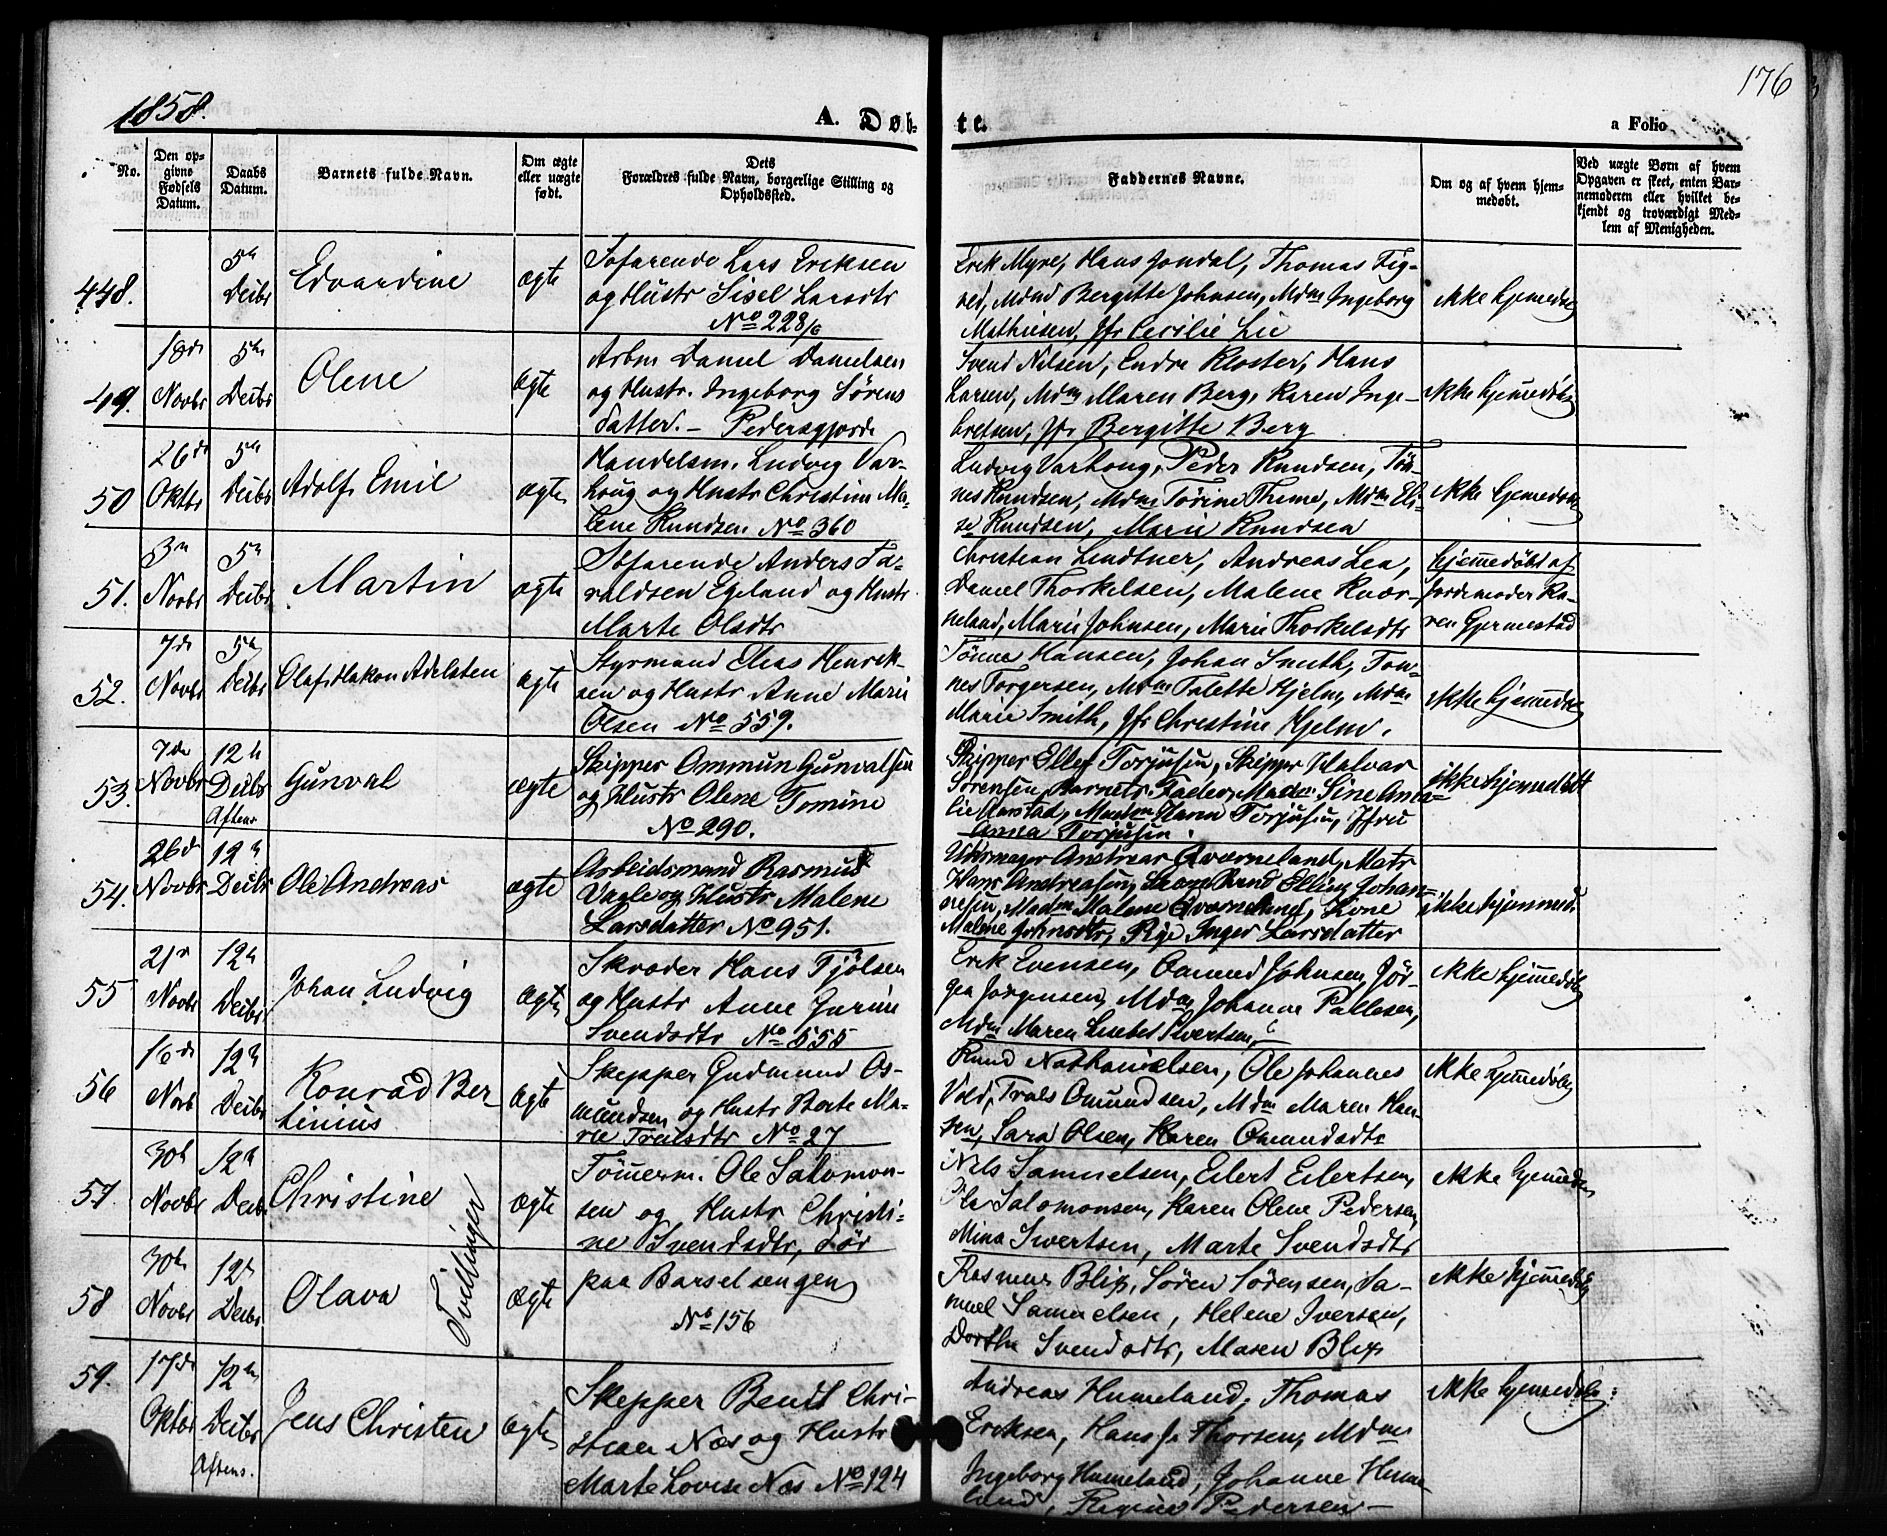 1858.
A. Døb-
te.
176
a Folio
No.
Den op-
givne
Fødsels
Datum.
Daabs
Datum.
Barnets fulde Navn.
Om ægte
eller uægte
født.
Dets
Forældres fulde Navn, borgerlige Stilling og
Opholdssted.
Faddernes Navne.
Om og af hvem hjem-
medøbt.
Ved uægte Børn af hvem
Opgaven er skeet, enten Bar-
nemoderen eller hvilket be-
kjendt og troværdigt Med-
lem af Menigheden.
448.
5te
Decbr
Edvardine
ægte
Søfarende Lars Eriksen
og Hustr Sisel Larsdtr
No 228/6
Erik Myre, Hans Jondal, Thomas Tig-
Mdm Bergitte Johnsen, Mdm Ingeborg
Mathiesen, Jfr Cecilie Lie
ikke hjemmedøbt
49.
18de
Novbr
5te
Decbr
Olene
ægte
Arbm Daniel Danielsen
og Hustr. Ingeborg Sørens
datter. – Pedersgjerde
Svend Nilsen, Endre Kloster, Hans
Larsen, Mdm Maren Berg, Karen Inge-
bretsen, Jfr Bergitte Berg
ikke hjemmedøbt
50
26de
Oktbr
5te
Decbr
Adolf Emil
ægte
Handelsm. Ludvig Var-
houg og Hustr Christine Ma-
lene Knudsen No 360
Ludvig Varhoug, Peder Knudsen, Tøn-
nes Knudsen, Mdm Tørine Thime, Mdm Eli-
se Knudsen, Marie Knudsen
ikke hjemmedøbt
51.
3die
Novbr
5te
Decbr
Martin
ægte
Søfarende Anders Ta-
raldsen Egeland og Hustr
Marte Olsdtr
Christian Lindtner, Andreas Lea,
Daniel Thorkelsen, Malene Kvær-
neland, Marie Johnsen, Marie Thorkelsdtr
hjemmedøbt af
Jordemoder Ka-
ren Gjermestad
52.
7de
Novbr
5te
Decbr
Olaf Hakon Adelsten
ægte
Styrmand Elias Henrik-
sen og Hustr Anne Marie
Olsen No 559.
Tønne Hansen, Johan Smith, Tøn-
nes Torgersen, Mdm Talette Hjelm, Mdm
Marie Smith, Jfr Christine Hjelm.
ikke hjemmedøbt
53.
7de
Novbr
12te
Decbr
Aftens
Gunval
ægte
Skipper Ommun Gunvalsen
og Hustr Olene Tomine
No 290.
Skipper Ellef Torjusen, Skipper Halvor
Sørensen, Barnets Fader, Madm Sine Ama-
lie Aarstad, Madm Karen Torjusen, Jfru
Anna Torjusen.
ikke hjemmedøbt
54.
26de
Novbr
12te
Decbr
Ole Andreas
ægte
Arbeidsmand Rasmus
Vagle og Hustr Malene
Larsdatter No 951.
Uhrmager Andreas Qværneland, Matr
Hans Andreasen, Elling Johan-
nesen, Madm Malene Qværneland, Kone
Malene Johnsdtr, Pige Inger Larsdatter
ikke hjemmed.
55
21de
Novbr
12te
Decbr
Johan Ludvig
ægte
Skræder Hans Tjølsen
og Hustr Anne Gurine
Svendsdtr No 555
Erik Evensen, Omund Johnsen, Jør-
gen Jørgensen, Mdm Johanne Pallesen,
Mdm Maren Lisebet Sivertsen,
ikke hjemmedøbt
56
16de
Novb
12te
Decbr
Konrad Ber-
tinius
ægte
Skipper Gudmund Os-
mundsen og Hustr Berte Ma-
rie Trulsdtr No 27
Knud Nathanielsen, Ole Johannes
Vold, Truls Omundsen, Mdm Maren Han-
sen, Sara Olsen, Karen Omundsdtr
ikke hjemmedøbt
57.
30te
Novbr
12te
Decbr
Christine
Tvillinger
ægte
Tømerm. Ole Salomon-
sen og Hustr Christi-
ne Svendsdtr, Dør
Nils Samuelsen, Eilert Eilertsen,
Ole Salomonsen, Karen Olene Pedersen,
Mina Sivertsen, Marte Svendsdtr
ikke hjemmedøbt
58
30te
Novbr
12te
Decbr
Olava
ægte
paa Barselsengen
No 156
Rasmus Blix, Søren Sørensen, Sa-
muel Samuelsen, Helene Iversen,
Dorthe Svendsdtr, Maren Blix
ikke hjemmedøbt
59.
17de
Oktbr
12te
Decbr
Aftens.
Jens Christen
ægte
Skipper Bendt Chri-
stian Næs og Hustr
Marte Lovise Næs No 124
Andreas Hummeland, Thomas
Eriksen, Hans J. Thorsen, Mdm
Ingeborg Hummeland, Johanne Humme-
land, Regine Pedersen –
ikke hjemmedøbt